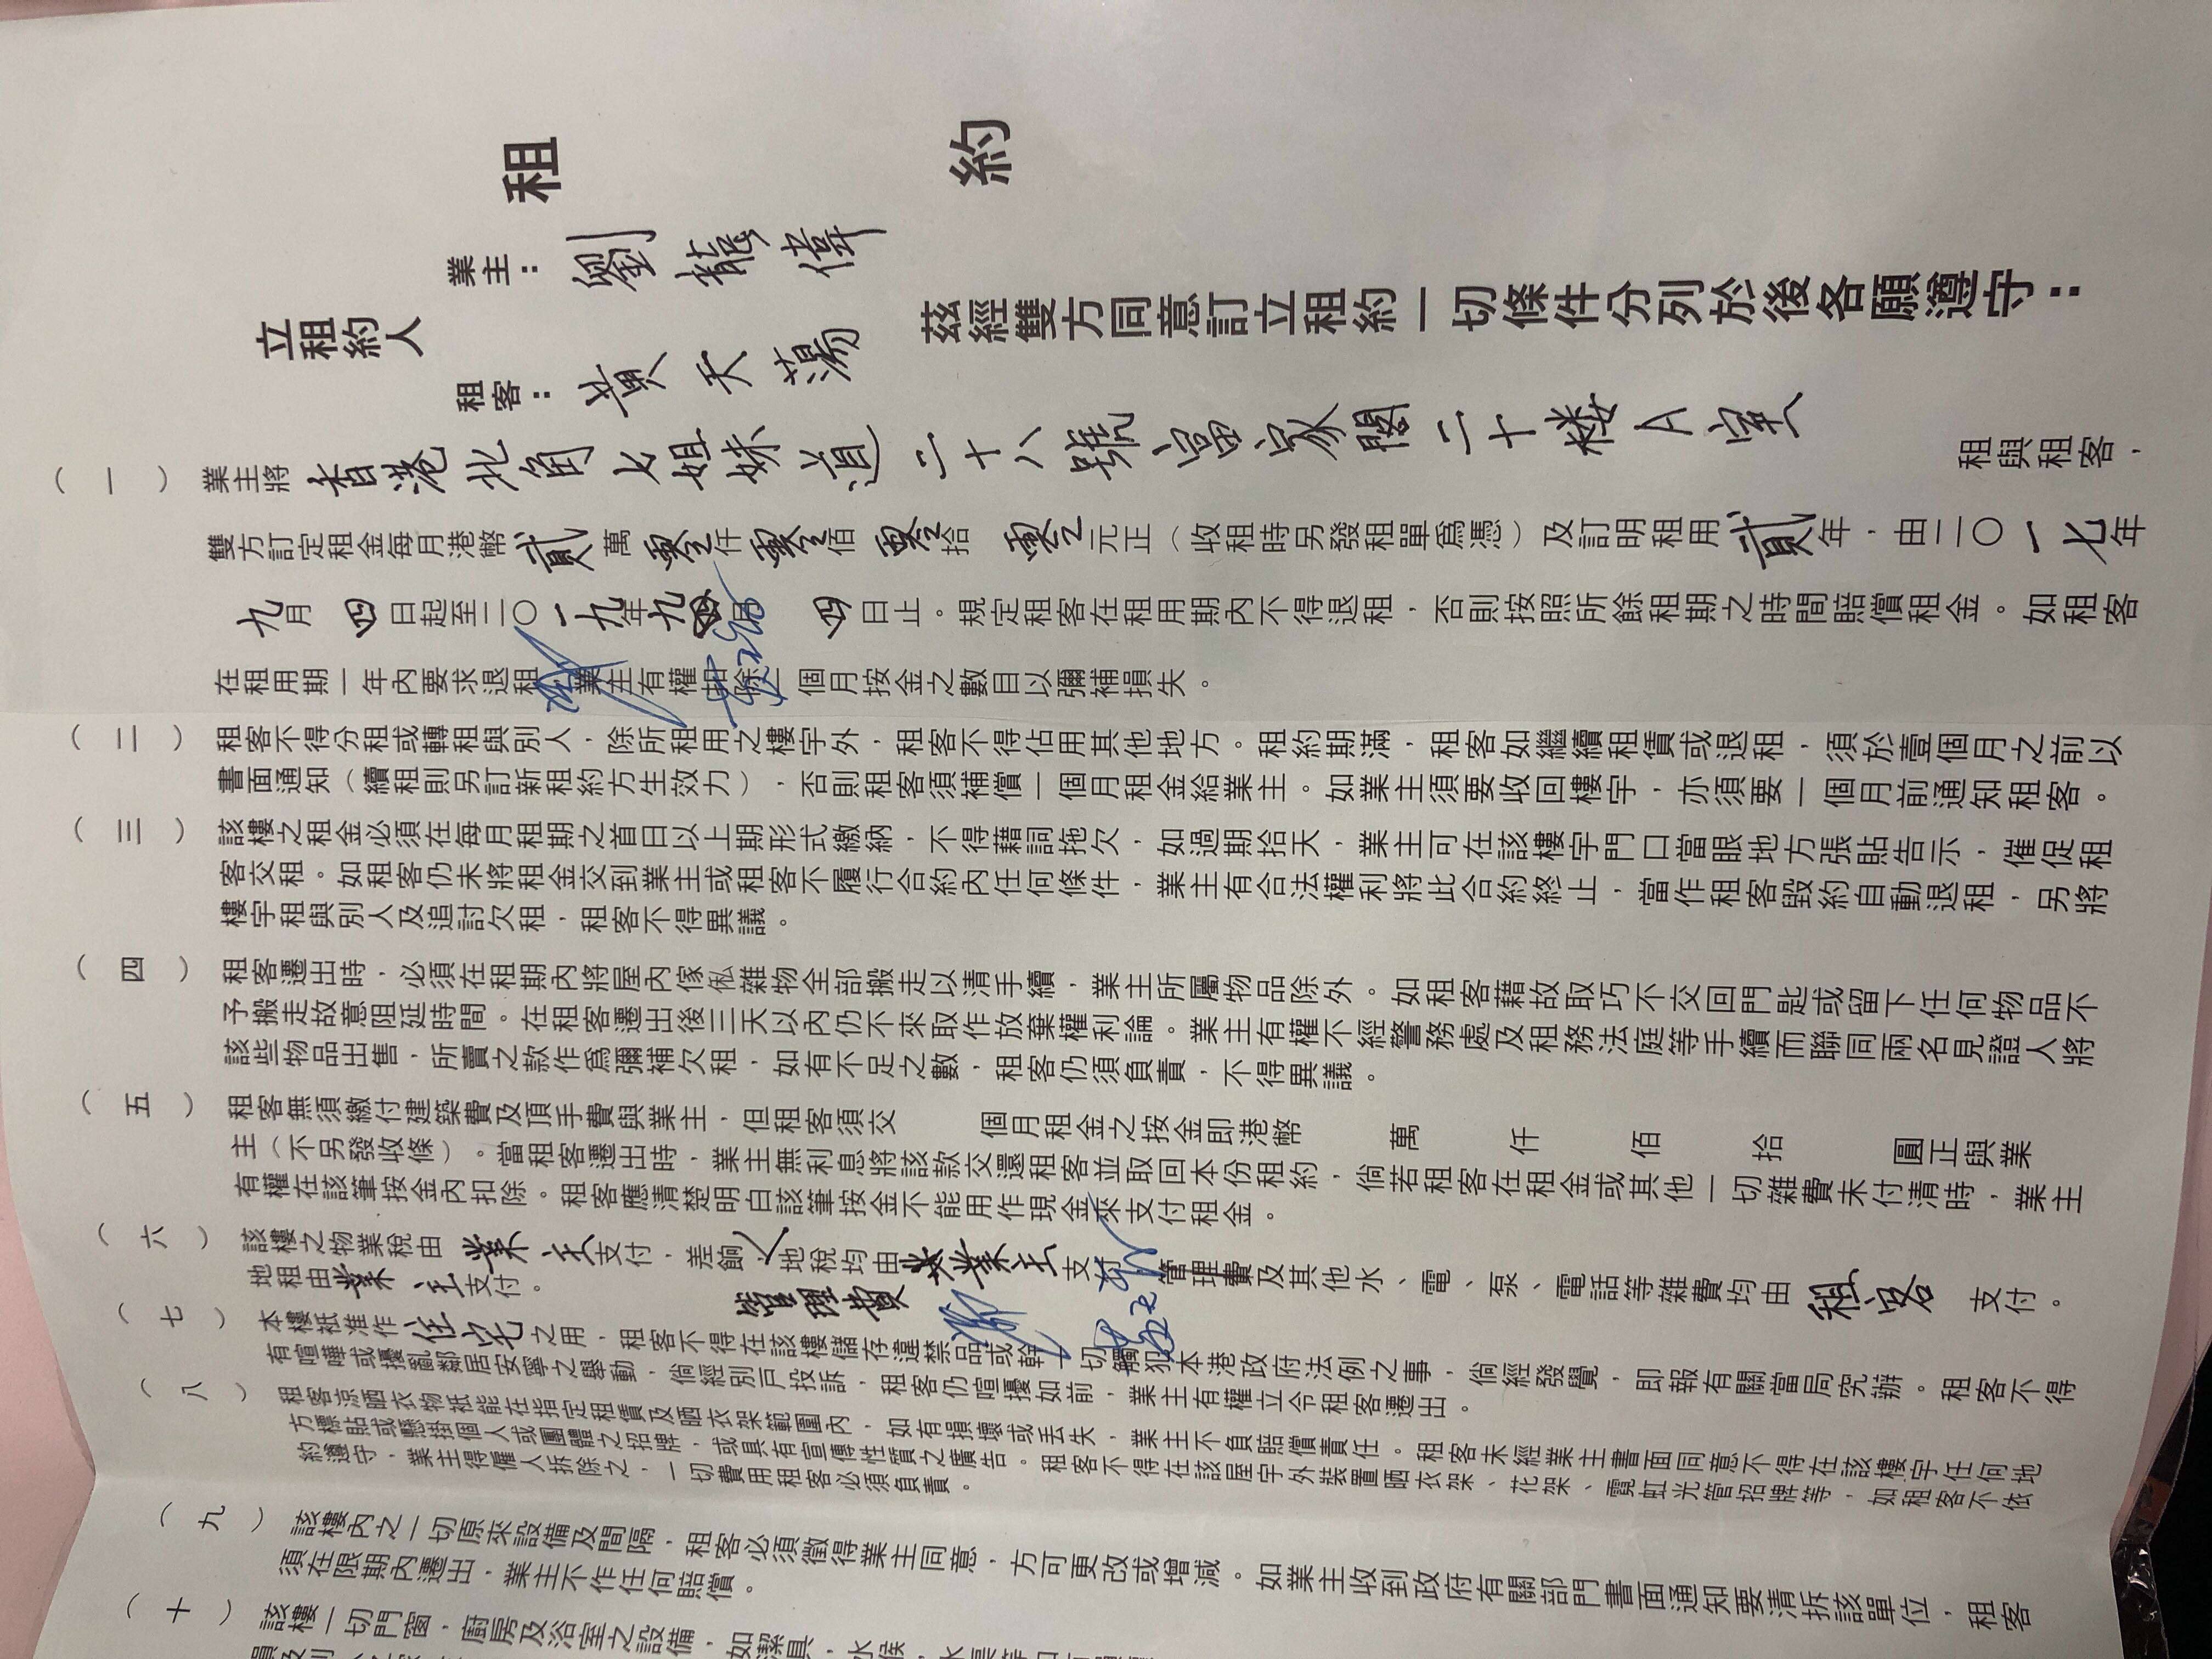 租約
立租約人
業主：劉龍偉
租客：黃天蕩
茲經雙方同意訂立租約一切條件分列於後各願遵守：
（一）業主將香港北角七姐妹道二十八號富家閣二十楼A室租與租客，
雙方訂定租金每月港幣貳萬零仟零佰零拾零元正（收租時另發租單爲憑）及訂明租用貳年，由二〇一七年
九月四日起至二〇一九年九月四日止。規定租客在租用期內不得退租，否則按照所餘租期之時間賠償租金。如租客
在租用期一年內要求退租，業主有權扣除 個月按金之數目以彌補損失。
（二）租客不得分租或轉租與別人，除所租用之樓宇外，租客不得佔用其他地方。租約期滿，租客如繼續租賃或退租，須於壹個月之前以
書面通知（續租則另訂新租約方生效力），否則租客須補償一個月租金給業主。如業主須要收回樓宇，亦須要一個月前通知租客。
（三）該樓之租金必須在每月租期之首日以上期形式繳納，不得藉詞拖欠，如過期拾天，業主可在該樓宇門口當眼地方張貼告示，催促租
客交租。如租客仍未將租金交到業主或租客不履行合約內任何條件，業主有合法權利將此合約終止，當作租客毀約自動退租，另將
樓宇租與別人及追討欠租，租客不得異議。
（四）租客遷出時，必須在租期內將屋內傢俬雜物全部搬走以清手續，業主所屬物品除外。如租客藉故取巧不交回門匙或留下任何物品不
予搬走故意阻延時間。在租客遷出後三天以內仍不來取作放棄權利論。業主有權不經警務處及租務法庭等手續而聯同兩名見證人將
該些物品出售，所賣之款作爲彌補欠租，如有不足之數，租客仍須負責，不得異議。
（五）租客無須繳付建築費及頂手費與業主，但租客須交 個月租金之按金即港幣 萬 仟 佰 拾 圓正與業
主（不另發收條）。當租客遷出時，業主無利息將該款交還租客並取回本份租約，倘若租客在租金或其他一切雜費未付清時，業主
有權在該筆按金內扣除。租客應清楚明白該筆按金不能用作現金來支付租金。
（六）該樓之物業稅由業主支付，差餉地稅均由業主支付，管理費及其他水、電、泵、電話等雜費均由租客支付。
地租由業主支付。
管理費
（七）本樓祇准作住宅之用，租客不得在該樓儲存違禁品或幹一切觸犯本港政府法例之事，倘經發覺，即報有關當局究辦。租客不得
有喧嘩或擾亂鄰居安寧之舉動，倘經別戶投訴，租客仍喧擾如前，業主有權立令租客遷出。
（八）租客涼晒衣物祇能在指定租賃及晒衣架範圍內，如有損壞或丢失，業主不負賠償責任。租客未經業主書面同意不得在該樓宇任何地
方標貼或懸掛個人或團體之招牌，或具有宣傳性質之廣告。租客不得在該屋宇外裝置晒衣架、花架、霓虹光管招牌等，如租客不依
約遵守，業主得僱人拆除之，一切費用租客必須負責。
（九）該樓內之一切原來設備及間隔，租客必須徵得業主同意，方可更改或增減。如業主收到政府有關部門書面通知要清拆該單位，租客
須在限期內遷出，業主不作任何賠償。
（十）該樓一切門窗，廚房及浴室之設備，如潔具，水喉，水渠等